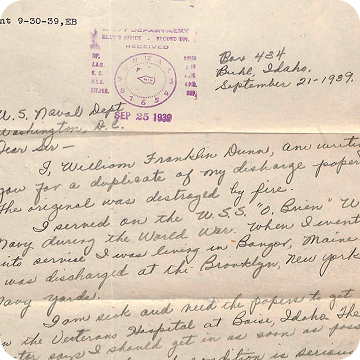 nt 9-30-39,EB
NAVY DEPARTMENT
RECEIVED
SEP 25 1939
Box 434
Buhl, Idaho,
September 21-1939.
U.S. Naval Dept
Washington, D.C.
Dear Sir-
I, William Franklin Dunn, am writ
you for a duplicate of my discharge paper
The original was destroyed by fire.
I served on the U.S.S. "O. Brien" U
Navy during the World War. When I went
into servise I was living in Bangor, Maine
was discharged at the Brooklyn, New York
Navy yards.
I am sick and need the papers to get
in the Vetterans Hospital at Boise, Idaho The
ter says I should get in as soon as poss
condition is serious